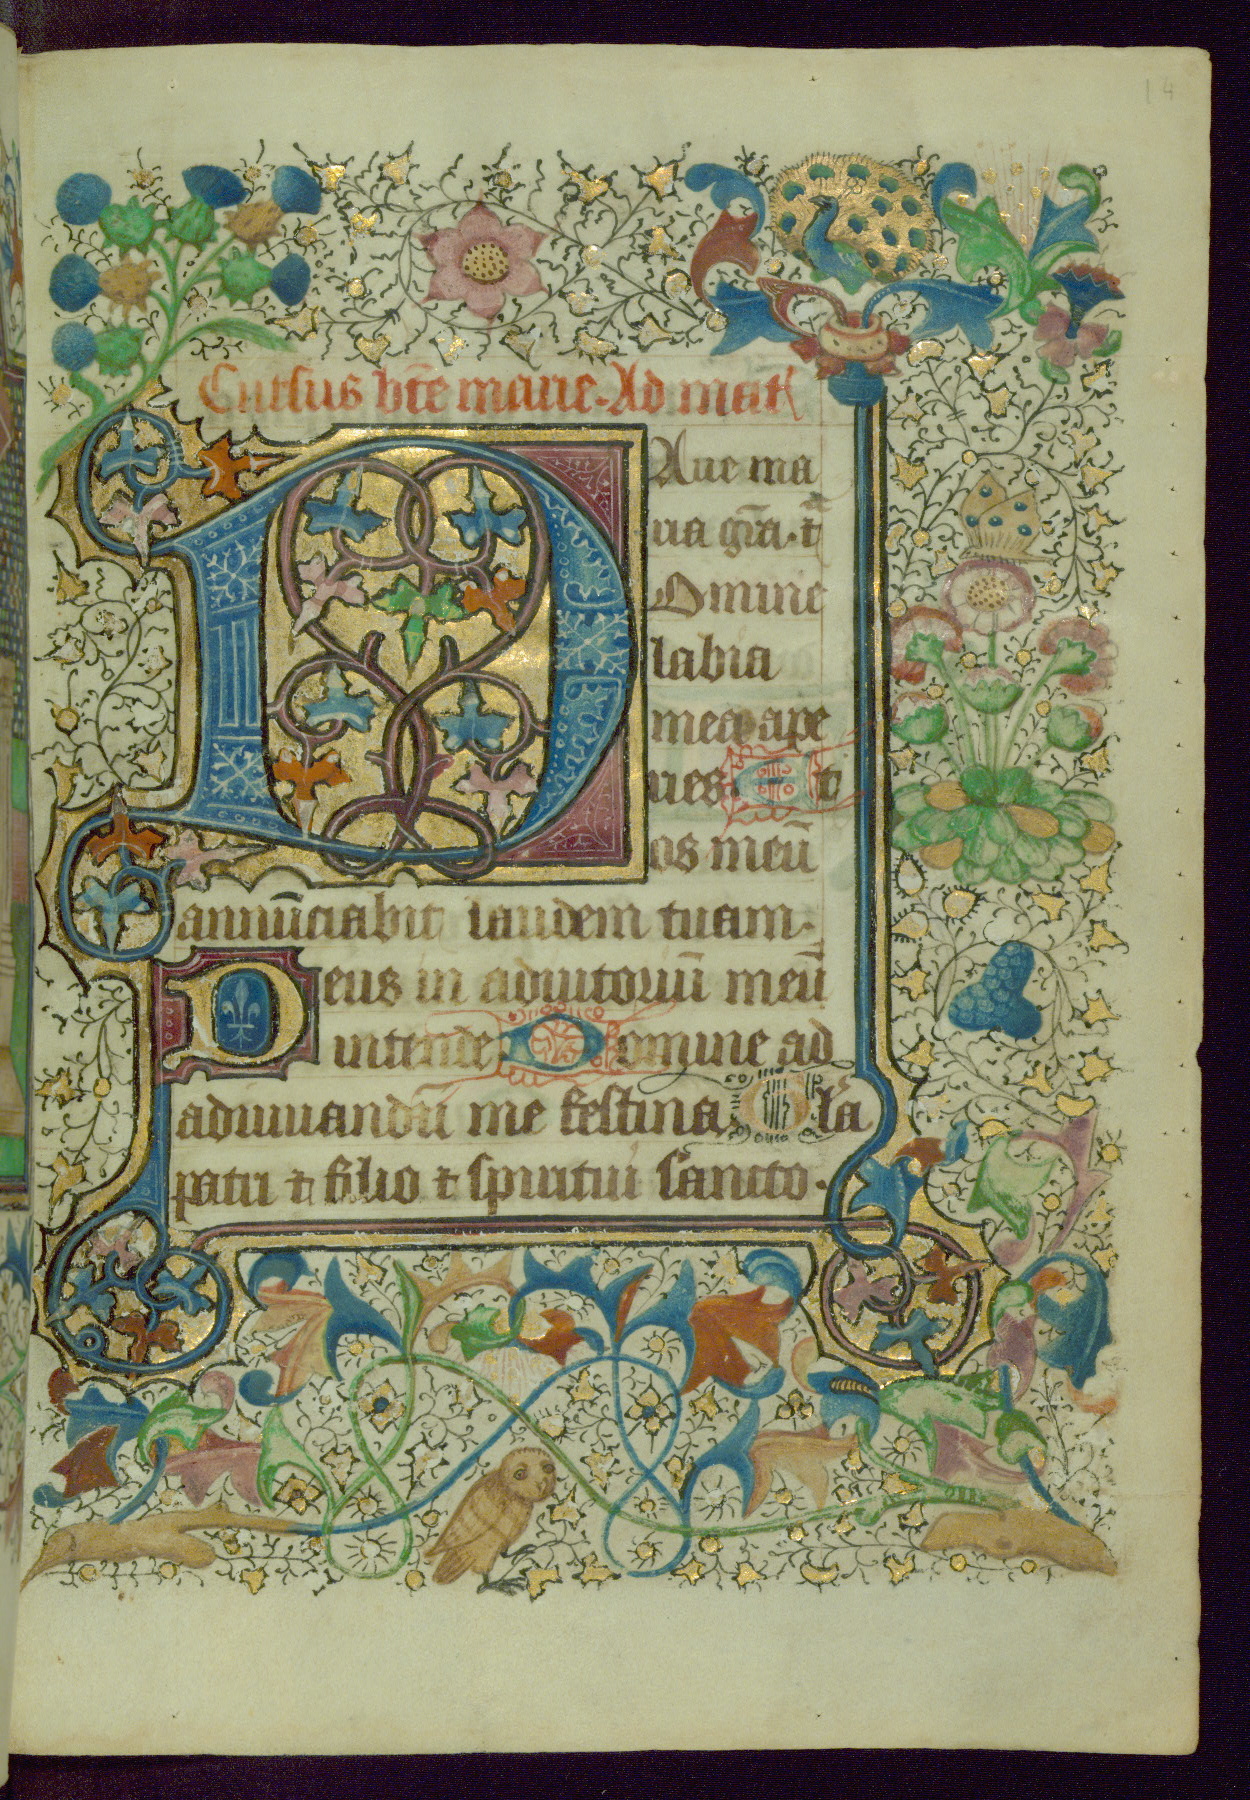 14
Cursus bt̄e marie. Ad mat̄
Aue ma
ria gr̄a. ⁊c̄
Domine
labia
mea ape
ries et
os meū
annūciabit laudem tuam.
Deus in adiutoriū meū
intende Domine ad
adiuuandū me festina Gl̄a
patri ⁊ filio ⁊ spiritui sancto.